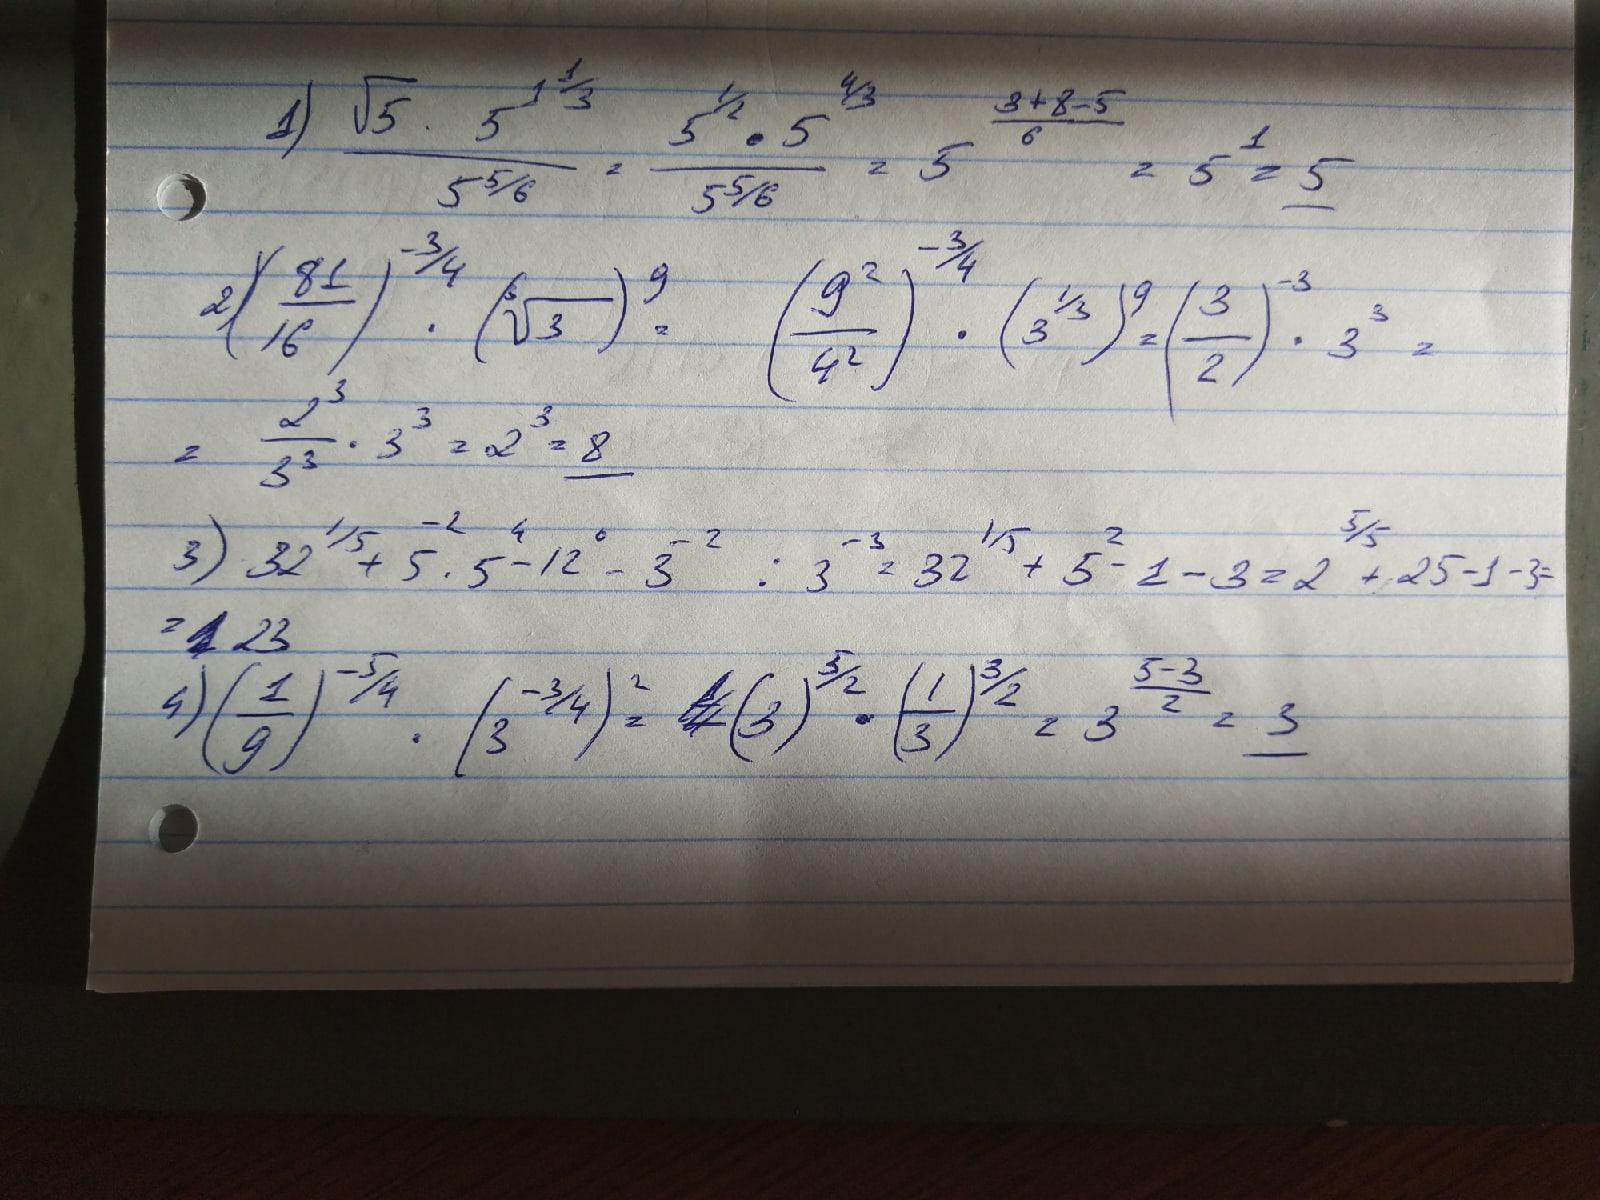 1) (√5 · 5^(1 1/3))/(5^(5/6)) = (5^(1/2) · 5^(4/3))/(5^(5/6)) = 5^((3+8-5)/6) = 5^1 = 5
2) (81/16)^(-3/4) · (∛3)^9 = (9^2/4^2)^(-3/4) · (3^(1/3))^9 = (3/2)^(-3) · 3^3 =
= 2^3/3^3 · 3^3 = 2^3 = 8
3) 32^(1/5) + 5^(-2) · 5^4 - 12^0 - 3^(-2) : 3^(-3) = 32^(1/5) + 5^2 - 1 - 3 = 2^(5/5) + 25 - 1 - 3 =
= 23
4) (1/9)^(-5/4) · (3^(-3/4))^2 = (3)^(5/2) · (1/3)^(3/2) = 3^((5-3)/2) = 3